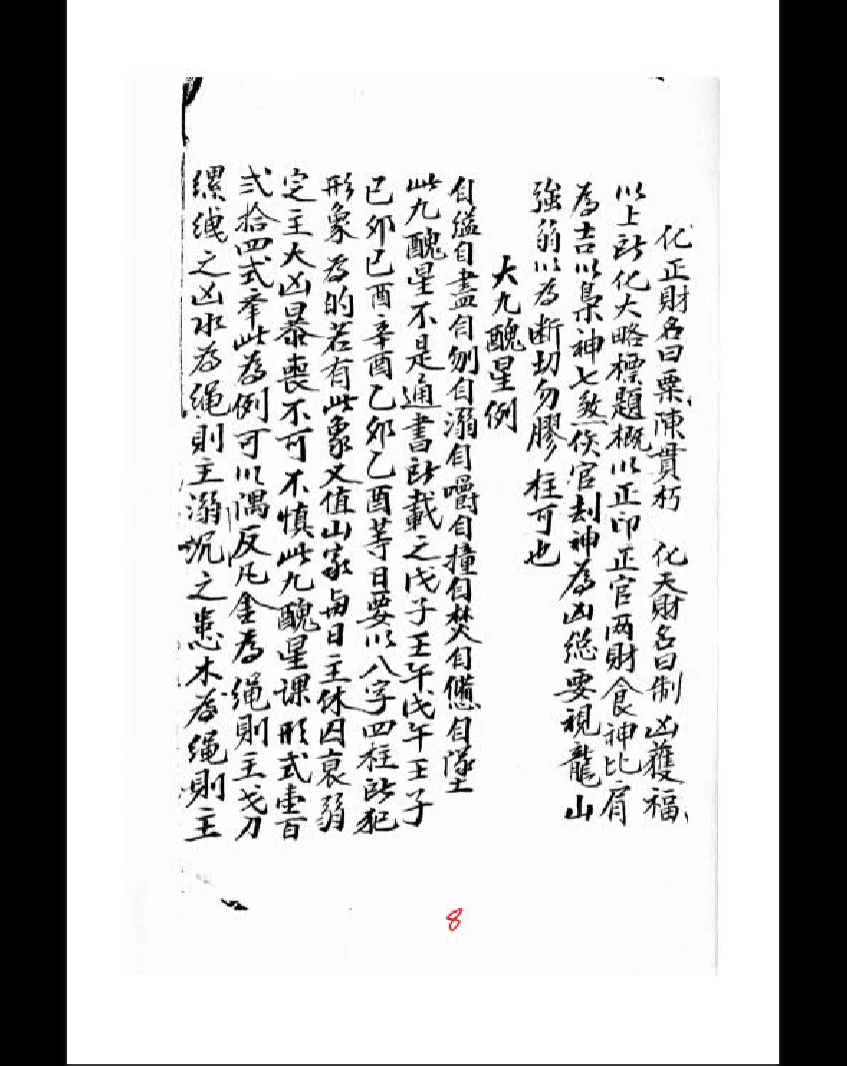 化正財名曰粟陳貫朽 化天財名曰制凶獲福
以上所化大略標題概以正印正官两財食神比肩
為吉以梟神七煞傷官刦神為凶緫要視龍山
強弱以為断切勿膠柱可也
大九醜星例
自縊自盡自刎自溺自嚼自撞自焚自自墜
此九醜星不是通書所載之戊子壬午戊午壬子
己卯己酉辛酉乙卯乙酉等日要以八字四柱所犯
形象為的若有此象又值山家每日主休囚衰弱
定主大凶暴喪不可不慎此九醜星課形式壹百
弍拾四式牽此為例可以隅反凡金為绳則主戈刀
縲絏之凶水為绳則主溺沉之患木為绳則主
8